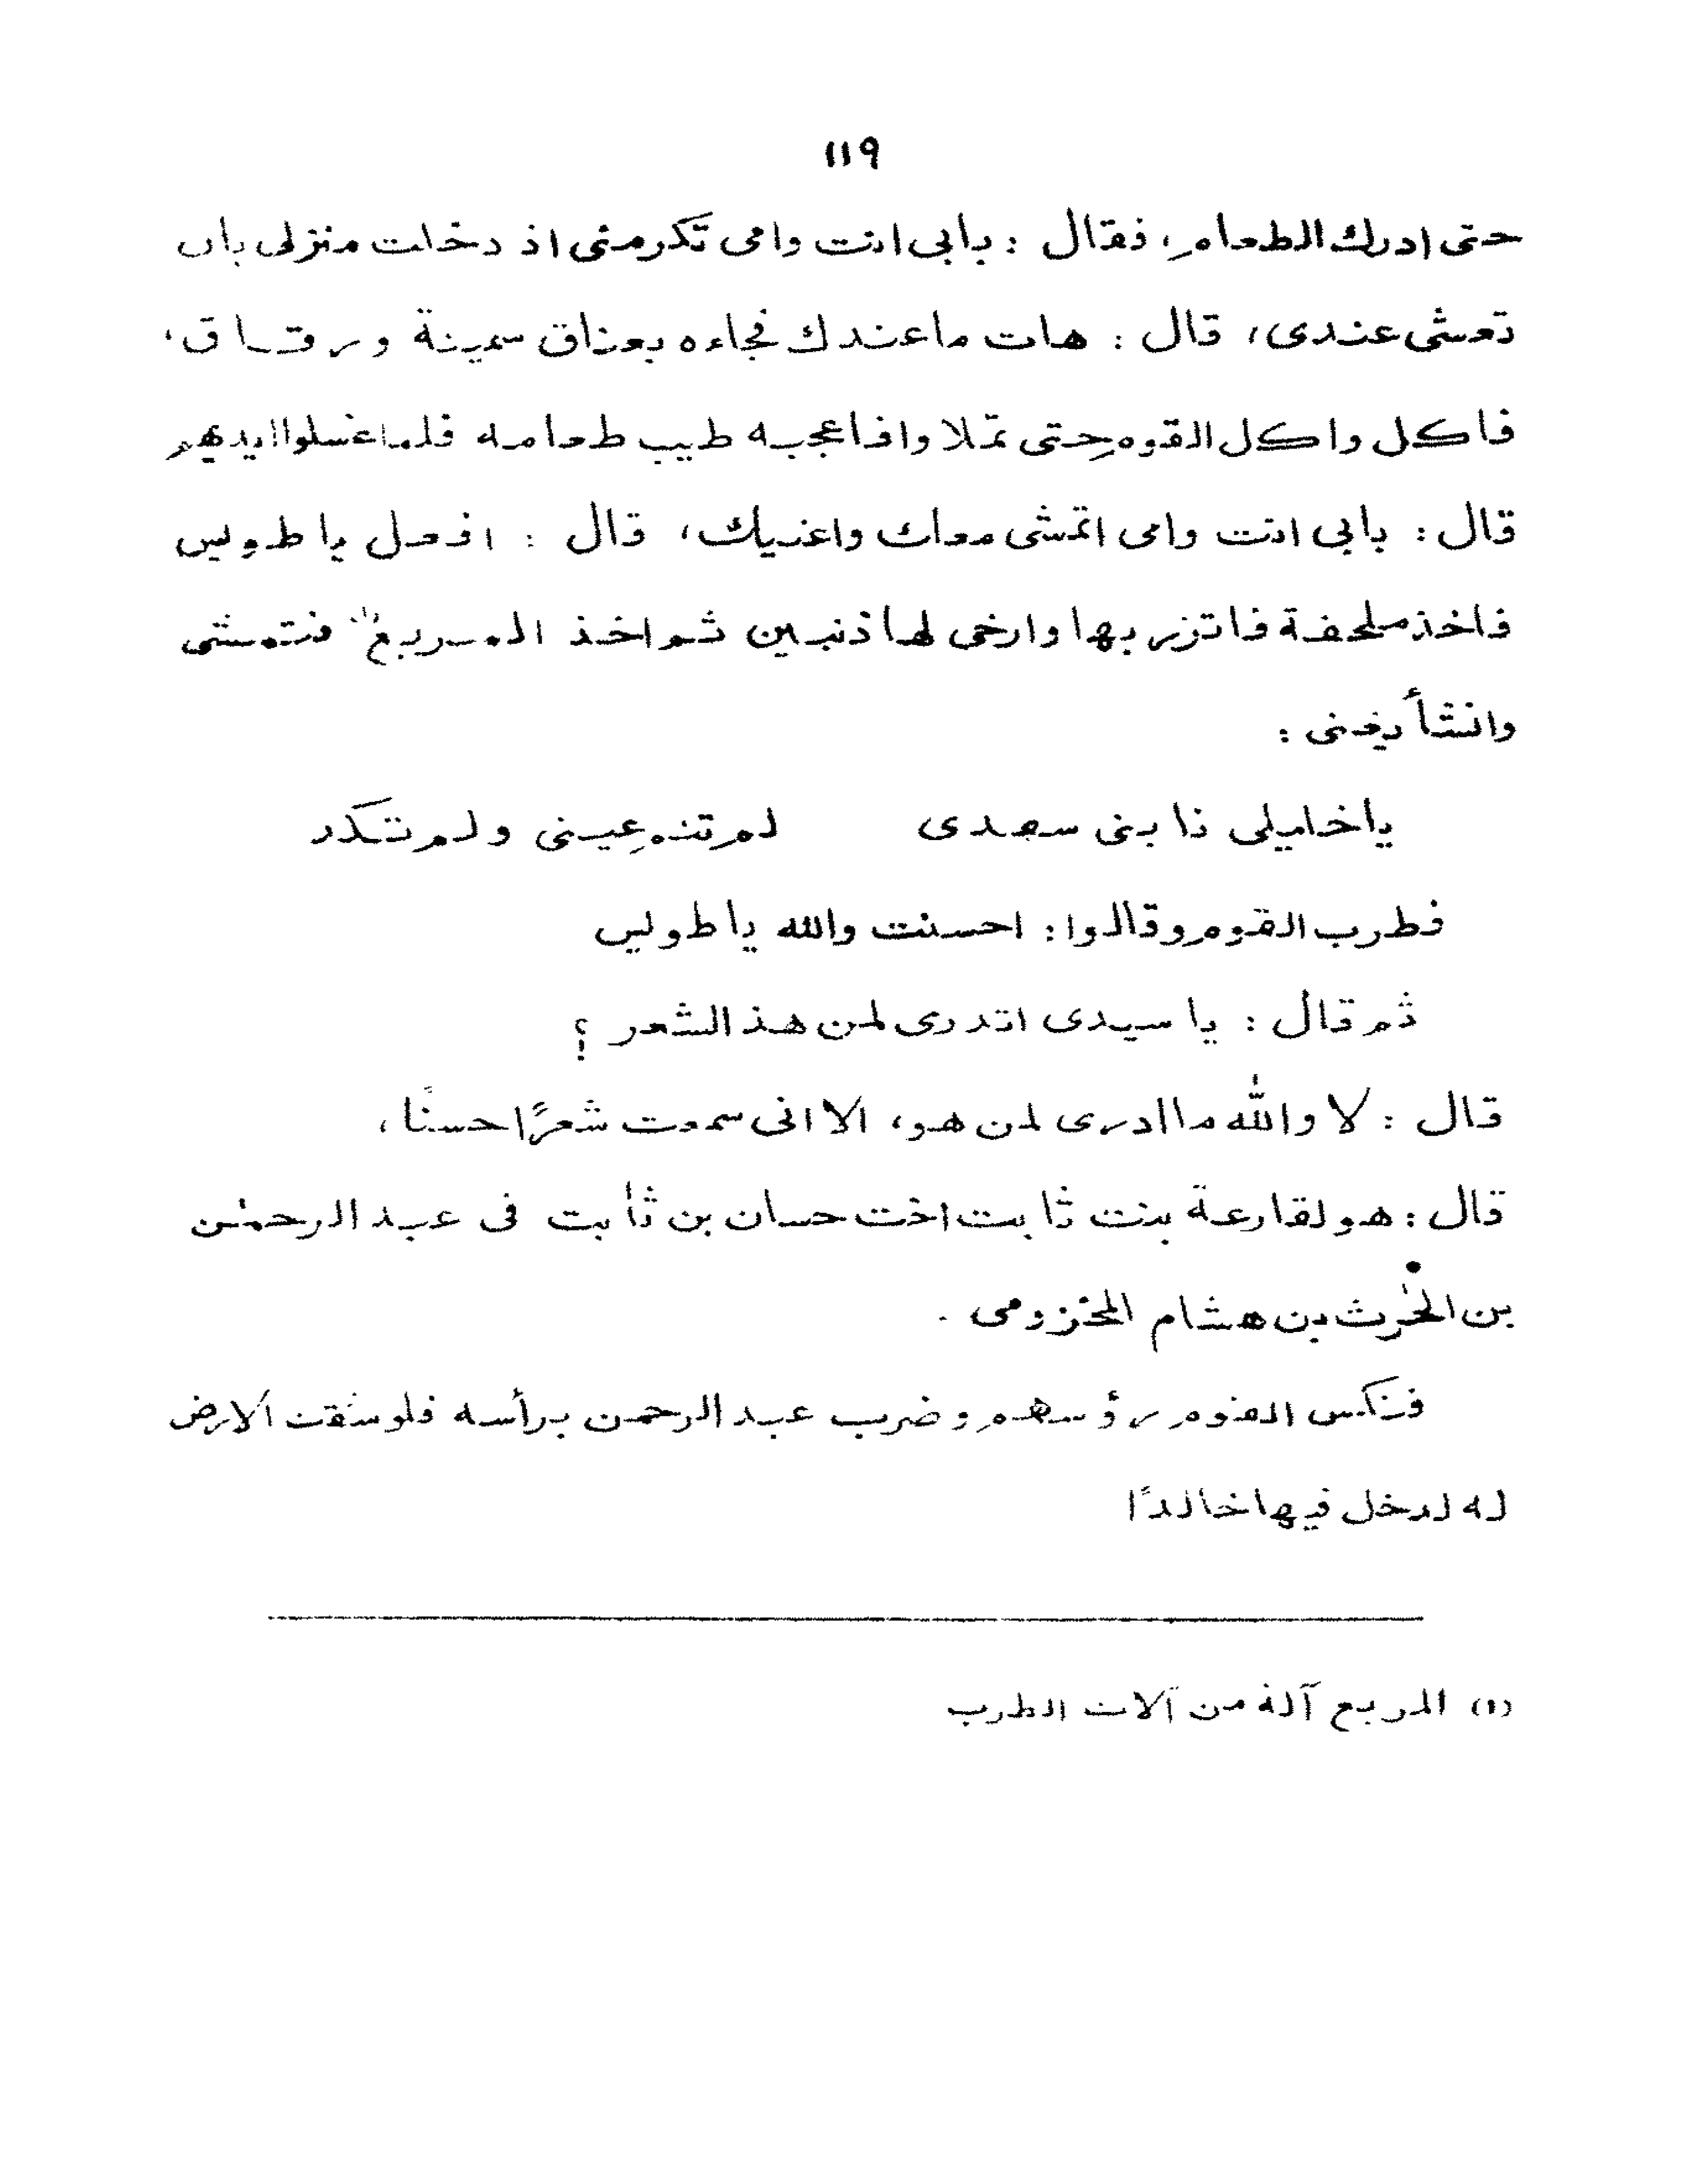 ١١٩
حتى ادرك الطعام، فقال : بابى انت وامى تكرمنى اذ دخلت منزلى بان
تعشى عندى، قال : هات ما عندك فجاءه بعناق سمينة ورقاق،
فاكل واكل القوم حتى تملا وافاعجبه طيب طعامه فلما غسلوا ايديهم
قال : بابى انت وامى اتمشى معك واغنيك، قال : افعل يا طويس
فاخذ ملحفة فاتزر بها وارخى لها ذنبين ثم اخذ المربع (١) فتمشى
وانشأ يغنى :
يا خليلى نابنى سهدى لم تنم عينى ولم تكد
فطرب القوم وقالوا : احسنت والله يا طويس
ثم قال : يا سيدى اتدرى لمن هذ الشعر ؟
قال : لا والله ما ادرى لمن هو، الا انى سمعت شعرًا حسنًا،
قال : هو لقارعة بنت ثابت اخت حسان بن ثابت فى عبد الرحمٰن
بن الحٰرث بن هشام المخزومى .
فنكس القوم رؤسهم وضرب عبد الرحمن برأسه فلو شقت الارض
له لدخل فيها خالدًا
(١) المربع آلة من آلات الطرب